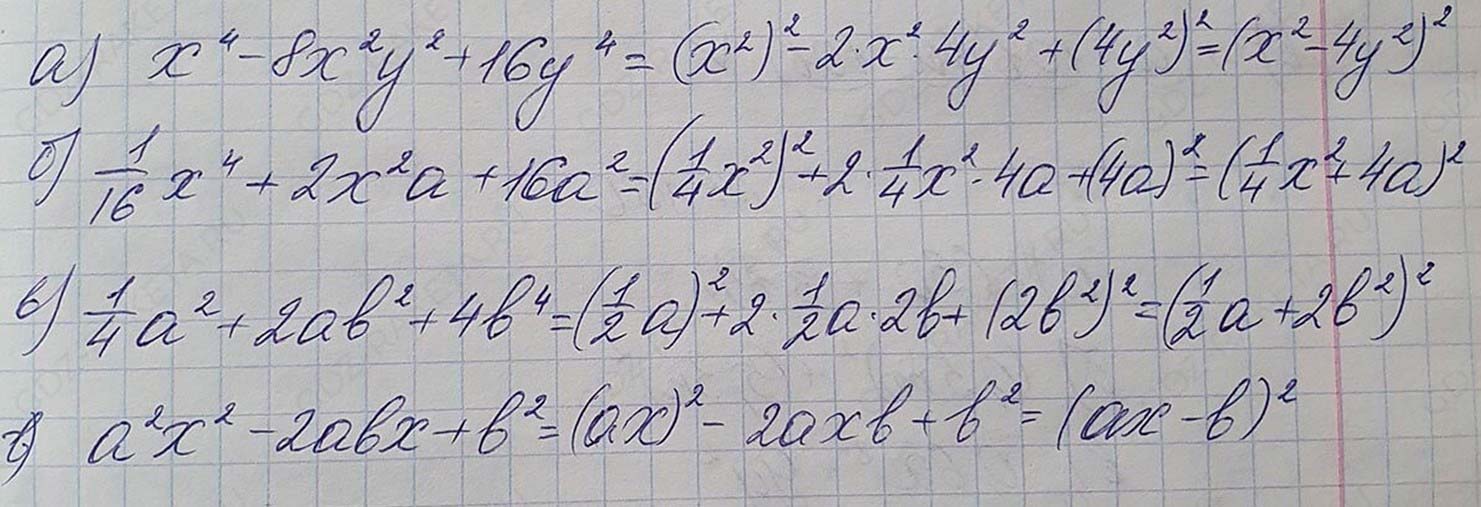 а) x⁴ - 8x²y² + 16y⁴ = (x²)² - 2·x²·4y² + (4y²)² = (x² - 4y²)²
б) 1/16 x⁴ + 2x²a + 16a² = (1/4 x²)² + 2·1/4 x²·4a + (4a)² = (1/4 x² + 4a)²
в) 1/4 a² + 2ab² + 4b⁴ = (1/2 a)² + 2·1/2 a·2b + (2b²)² = (1/2 a + 2b²)²
г) a²x² - 2abx + b² = (ax)² - 2axb + b² = (ax - b)²